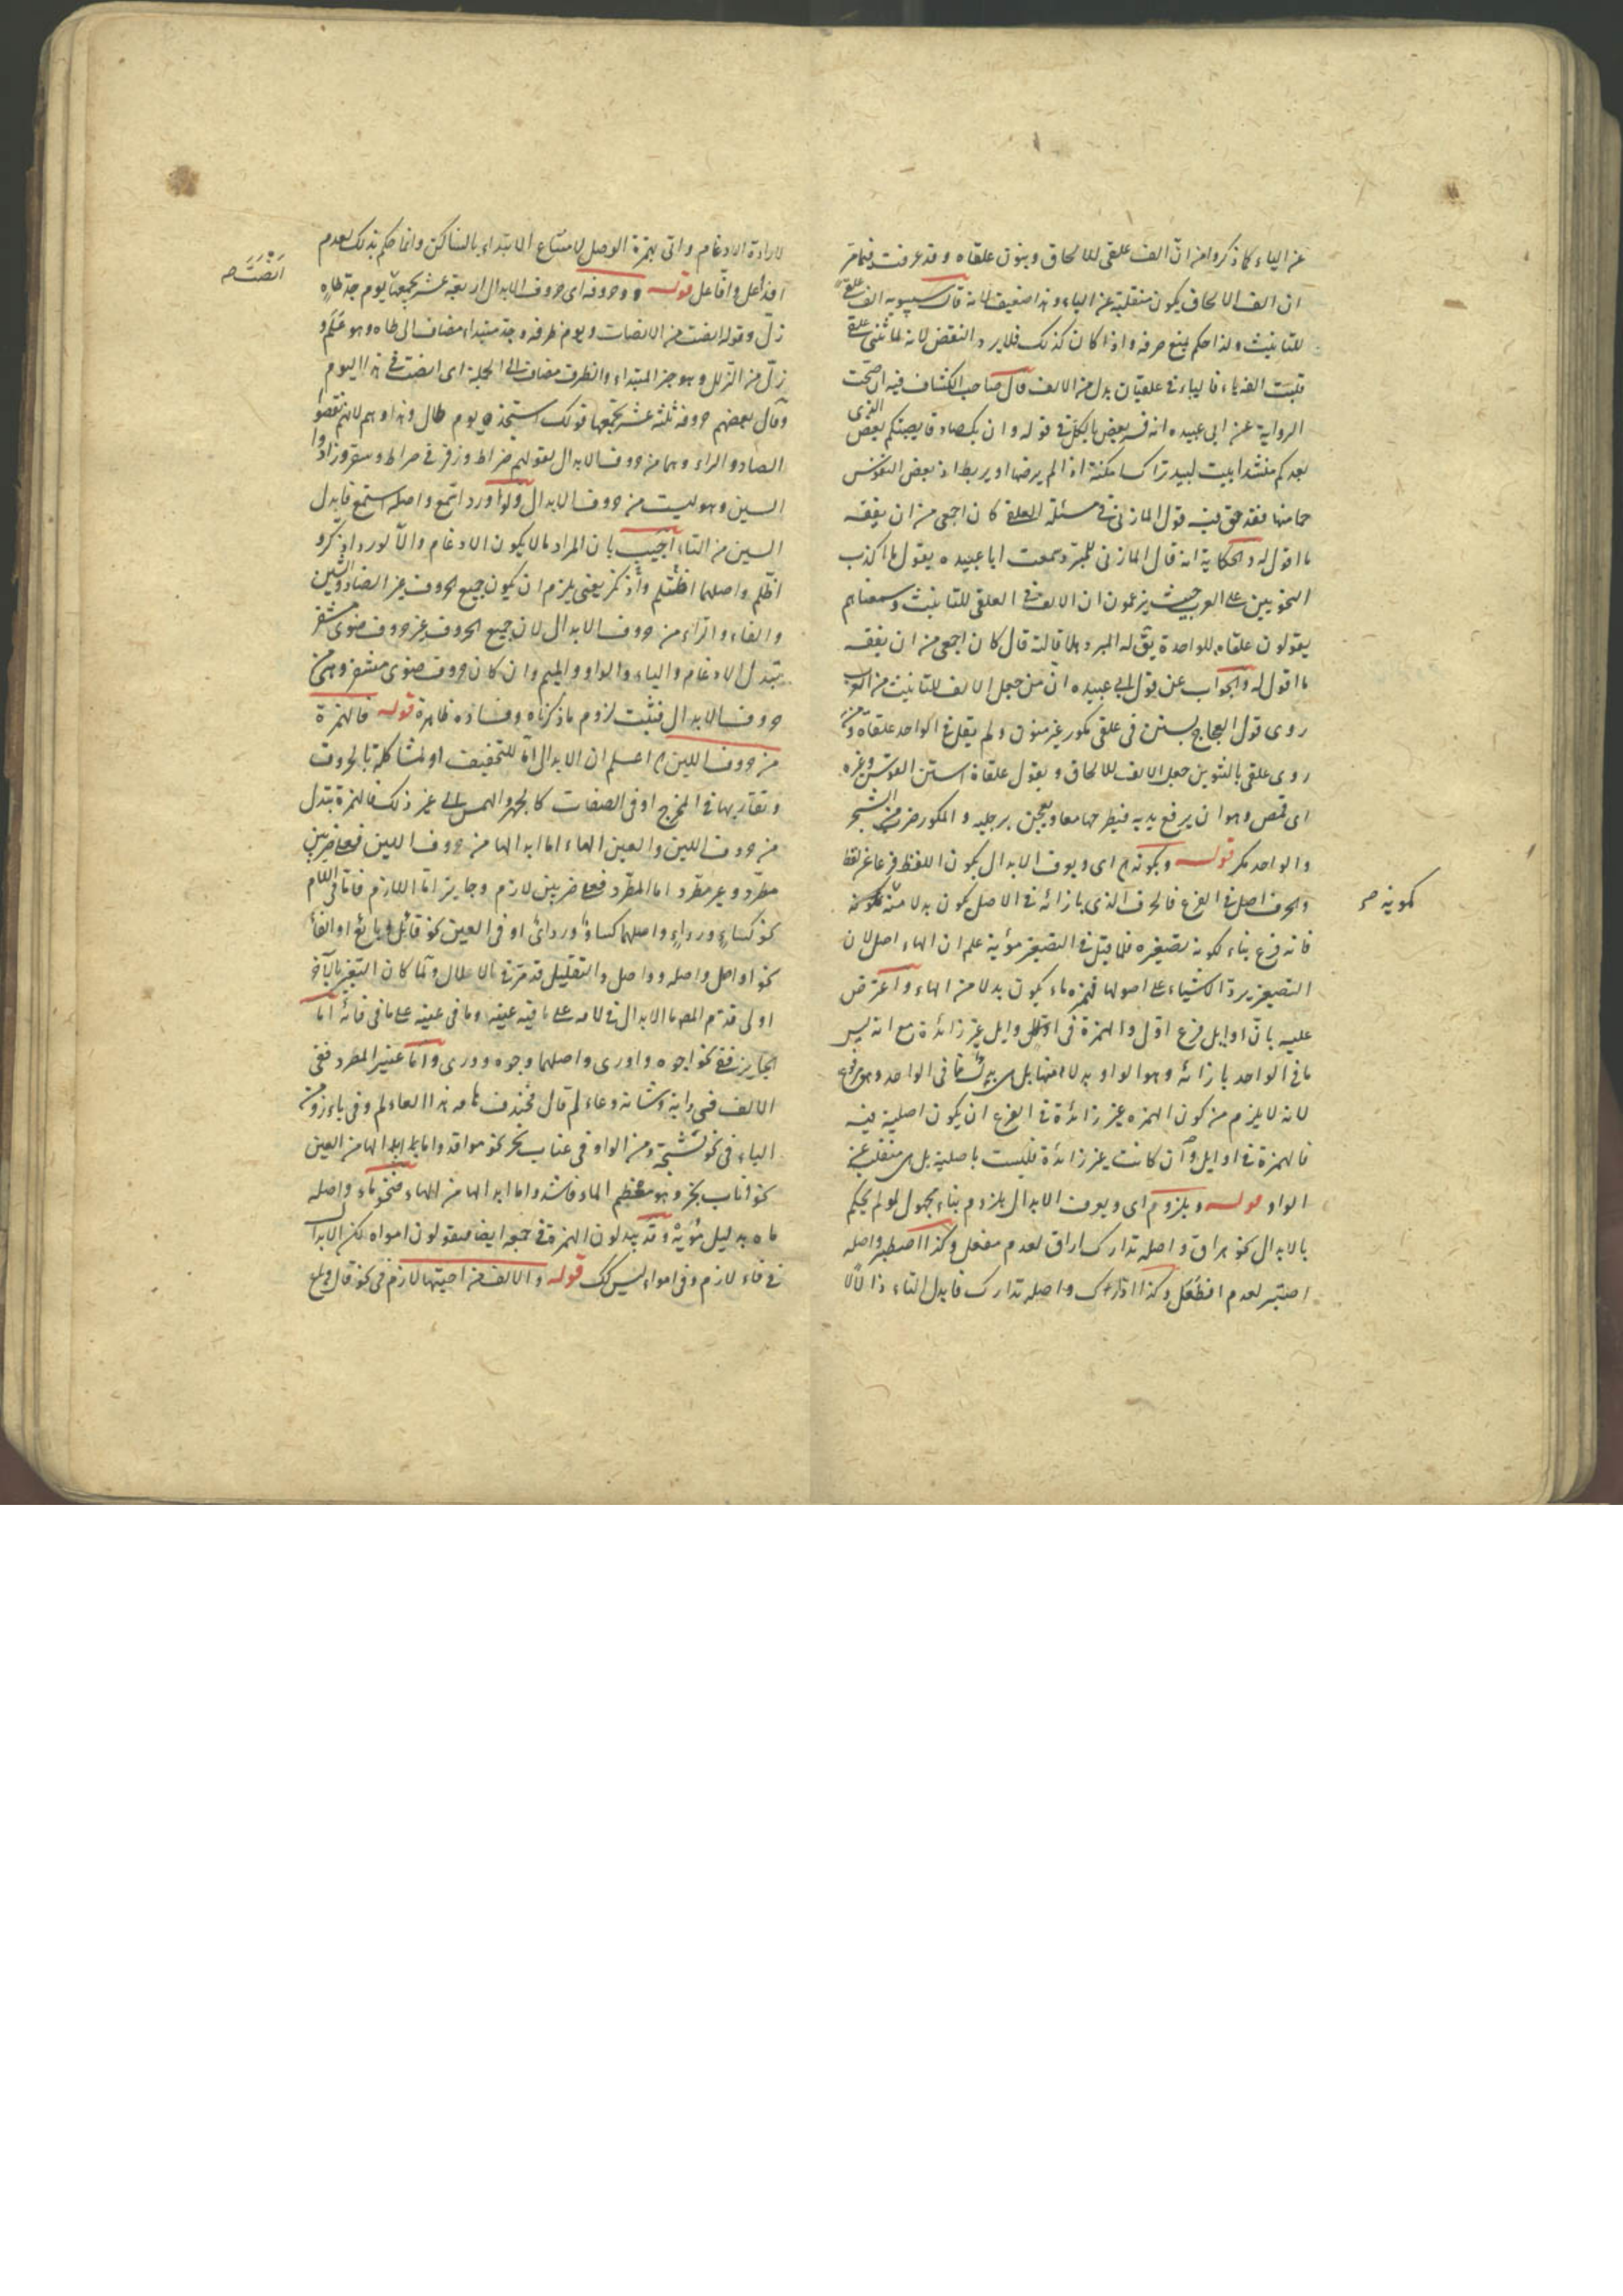 عن الياء كما ذكروا من ان الف علقى للالحاق وينون علقاه وقد عرفت فيما مر
ان الف الالحاق يكون منقلبة عن الياء وهذا ضعيف لانه قال سيبويه الف علقى
للتانيث ولذا حكم بمنع صرفه واذا كان كذلك فلا يرد النقض لانه لما ثنى علقى
قلبت الفه ياء فالياء فى علقيان بدل من الالف قال صاحب الكشاف فيه ان صحت
الرواية عن ابى عبيده انه فسر بعض بالكل فى قوله وان يك صادقا يصبكم بعض الذى
يعدكم منشدا بيت لبيد تراك امكنة اذا لم يرضها او يربط اذ بعض النفوس
حمامها فقد حق فيه قول المازنى فى مسئلة العلقى كان اجفى من ان يفقه
ما اقول له والحكاية انه قال المازنى للمبرد سمعت ابا عبيده يقول ما اكذب
النحويين على العرب حيث يزعمون ان الالف فى العلقى للتانيث وسمعناهم
يقولون علقاه للواحدة يق له المبرد هلا قالته قال كان اجفى من ان يفقه
ما اقول له والجواب عن قول ابى عبيده ان من جعل الالف للتانيث من العرب
روى قول العجاج يستن فى علقى مكور غير منون ولم يقل فى الواحد علقاة ومن
روى علقى بالتنوين جعل الالف للالحاق ويقول علقاة استن الفرس وغيره
اى قمص وهو ان يرفع يديه فيطرحهما معا ويعجن برجليه والمكور ضرب من الشجر
والواحد مكر قوله وبكونه اى ويعرف الابدال بكون اللفظ فرعا عن لفظ
والحرف اصل فى الفرع فالحرف الذى بازائه فى الاصل يكون بدلا منه كمويه
كمويه صح
فانه فرع بناء لكونه تصغيره فلما قيل فى التصغير مويه علم ان الهاء اصل لان
التصغير يرد الاشياء على اصولها فهمزه ماء يكون بدلا من الهاء واعترض
عليه بان اوايل فرع اول والهمزة فى اوايل غير زائدة مع انه ليس
ما فى الواحد بازائه وهو الواو بدلا منها بل هى بدل مما فى الواحد وهو مدفوع
لانه لا يلزم من كون الهمزه غير زائدة فى الفرع ان يكون اصلية فيه
فالهمزة فى اوايل وان كانت غير زائدة فليست باصلية بل هى منقلب عن
الواو قوله وبلزوم اى ويعرف الابدال بلزوم بناء مجهول لو لم يحكم
بالابدال نحو هراق واصله اراق لعدم هفعل وكذا اصطبر واصله
اصتبر لعدم افطعل وكذا ادارك واصله تدارك فابدل التاء دالا
لارادة الادغام واتى بهمزة الوصل لامتناع الابتداء بالساكن وانما حكم بذلك لعدم
افداعل وافاعل قوله وحروفه اى حروف الابدال اربعة عشر يجمعها يوم جد طاه
انصت صح
زل وقوله انصت من الانصات ويوم ظرفه وجد مبتداء مضاف الى طاه وهو علم و
زل من الزلل وهو خبر المبتداء والظرف مضاف الى الجملة اى انصت فى هذا اليوم
وقال بعضهم حروفه ثلثة عشر يجمعها قولك استنجده يوم طال وهذا وهم لانهم نقصوا
الصاد والزاء وهما من حروف الابدال لقولهم صراط وزقر فى سراط وسقر وزادوا
السين وهو ليست من حروف الابدال ولو اورد اسمع واصله استمع فابدل
السين من التاء اجيب بان المراد ما لا يكون الادغام والا لورد اذكر و
اظلم واصلهما اظتلم واذتكر يعنى يلزم ان يكون جميع الحروف غير الضاد والشين
والفاء والراء من حروف الابدال لان جميع الحروف غير حروف ضوى مشفر
تبدل للادغام والياء والواو والميم وان كان حروف ضوى مشفر وهى من
حروف الابدال فثبت لزوم ما ذكرناه وفساده ظاهرة قوله فالهمزة
من حروف اللين اعلم ان الابدال اما للتخفيف او لمشاكلة بالحروف
وتقاربها فى المخرج او فى الصفات كالجهر والهمس الى غير ذلك فالهمزة تبدل
من حروف اللين والعين والهاء اما ابدالها من حروف اللين فعلى ضربين
مطرد وغير مطرد اما المطرد فعلى ضربين لازم وجايز اما اللازم فاما فى اللام
نحو كساء ورداء واصلهما كساو ورداى او فى العين نحو قائل وبائع او الفاء
نحو اواصل واصله وواصل والتعليل قد مر فى الاعلال ولما كان التغير بالآخر
اولى قدم المص ما الابدال فى لامه على ما فيه عينه وما فى عينه على ما فى فائه اما
الجايز ففى نحو اجوه واورى واصلهما وجوه وورى واما غير المطرد ففى
الالف فى دابة وشابة وعالم قال فخندف هامة هذا العالم وفى باز ومن
الياء فى نحو شئمة ومن الواو فى نحو مؤقد واما ابدالها من العين
نحو اباب بحر وهو معظم الماء فاشد واما ابدالها من الهاء فنحو ماء واصله
ماه بدليل مويه وقد يبدلون الهمزة فى جمعه ايضا فيقولون امواء لكن الابدال
فى ماء لازم وفى امواء ليس كك قوله والالف من اختيها لازم فى نحو قال وباع